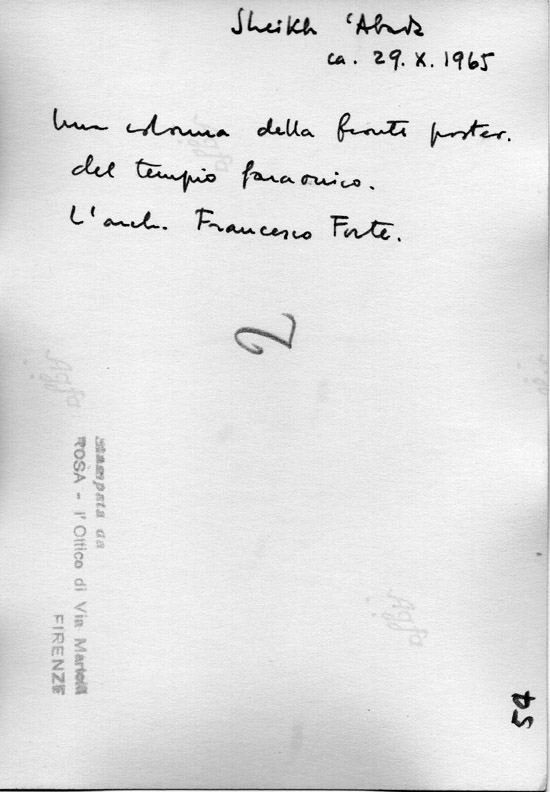 Sheikh 'Abada
ca. 29.X.1965
Una colonna della fronte poster.
del tempio faraonico.
L'arch. Francesco Forte.
2
Stampata da
ROSÀ - l'Ottico di Via Martelli
FIRENZE
54
Agfa
Agfa
Agfa